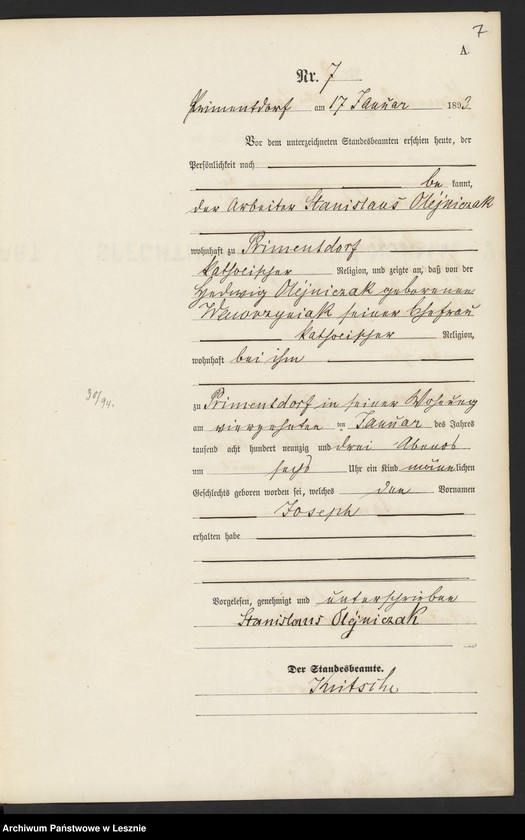 7
A.
Nr. 7
Primentdorf am 17 Januar 1893
Vor dem unterzeichneten Standesbeamten erschien heute, der
Persönlichkeit nach
be kannt,
der Arbeiter Stanislaus Olejniczak
wohnhaft zu Primentdorf
katholischer Religion, und zeigte an, daß von der
Hedwig Olejniczak geborenen
seiner Ehefrau
katholischer Religion,
wohnhaft bei ihm
30/94.
zu Primentdorf in seiner Wohnung
am vierzehnten ten Januar des Jahres
tausend acht hundert neunzig und drei Abends
um sechs Uhr ein Kind männlichen
Geschlechts geboren worden sei, welches den Vornamen
Joseph
erhalten habe
Vorgelesen, genehmigt und unterschrieben
Stanislaus Olejniczak
Der Standesbeamte.
Archiwum Państwowe w Lesznie